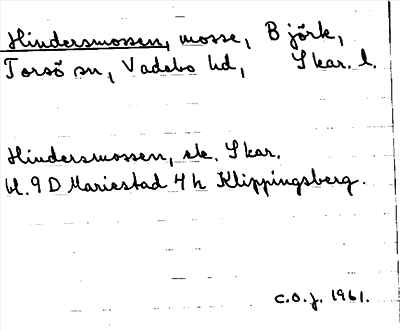 Hindersmossen, mosse, Björk,
Torsö sn, Vadsbo hd, Skar. l.
Hindersmossen, sk. Skar.
bl. 9 D Mariestad 7 h Klippingsberg.
C.O.J. 1961.